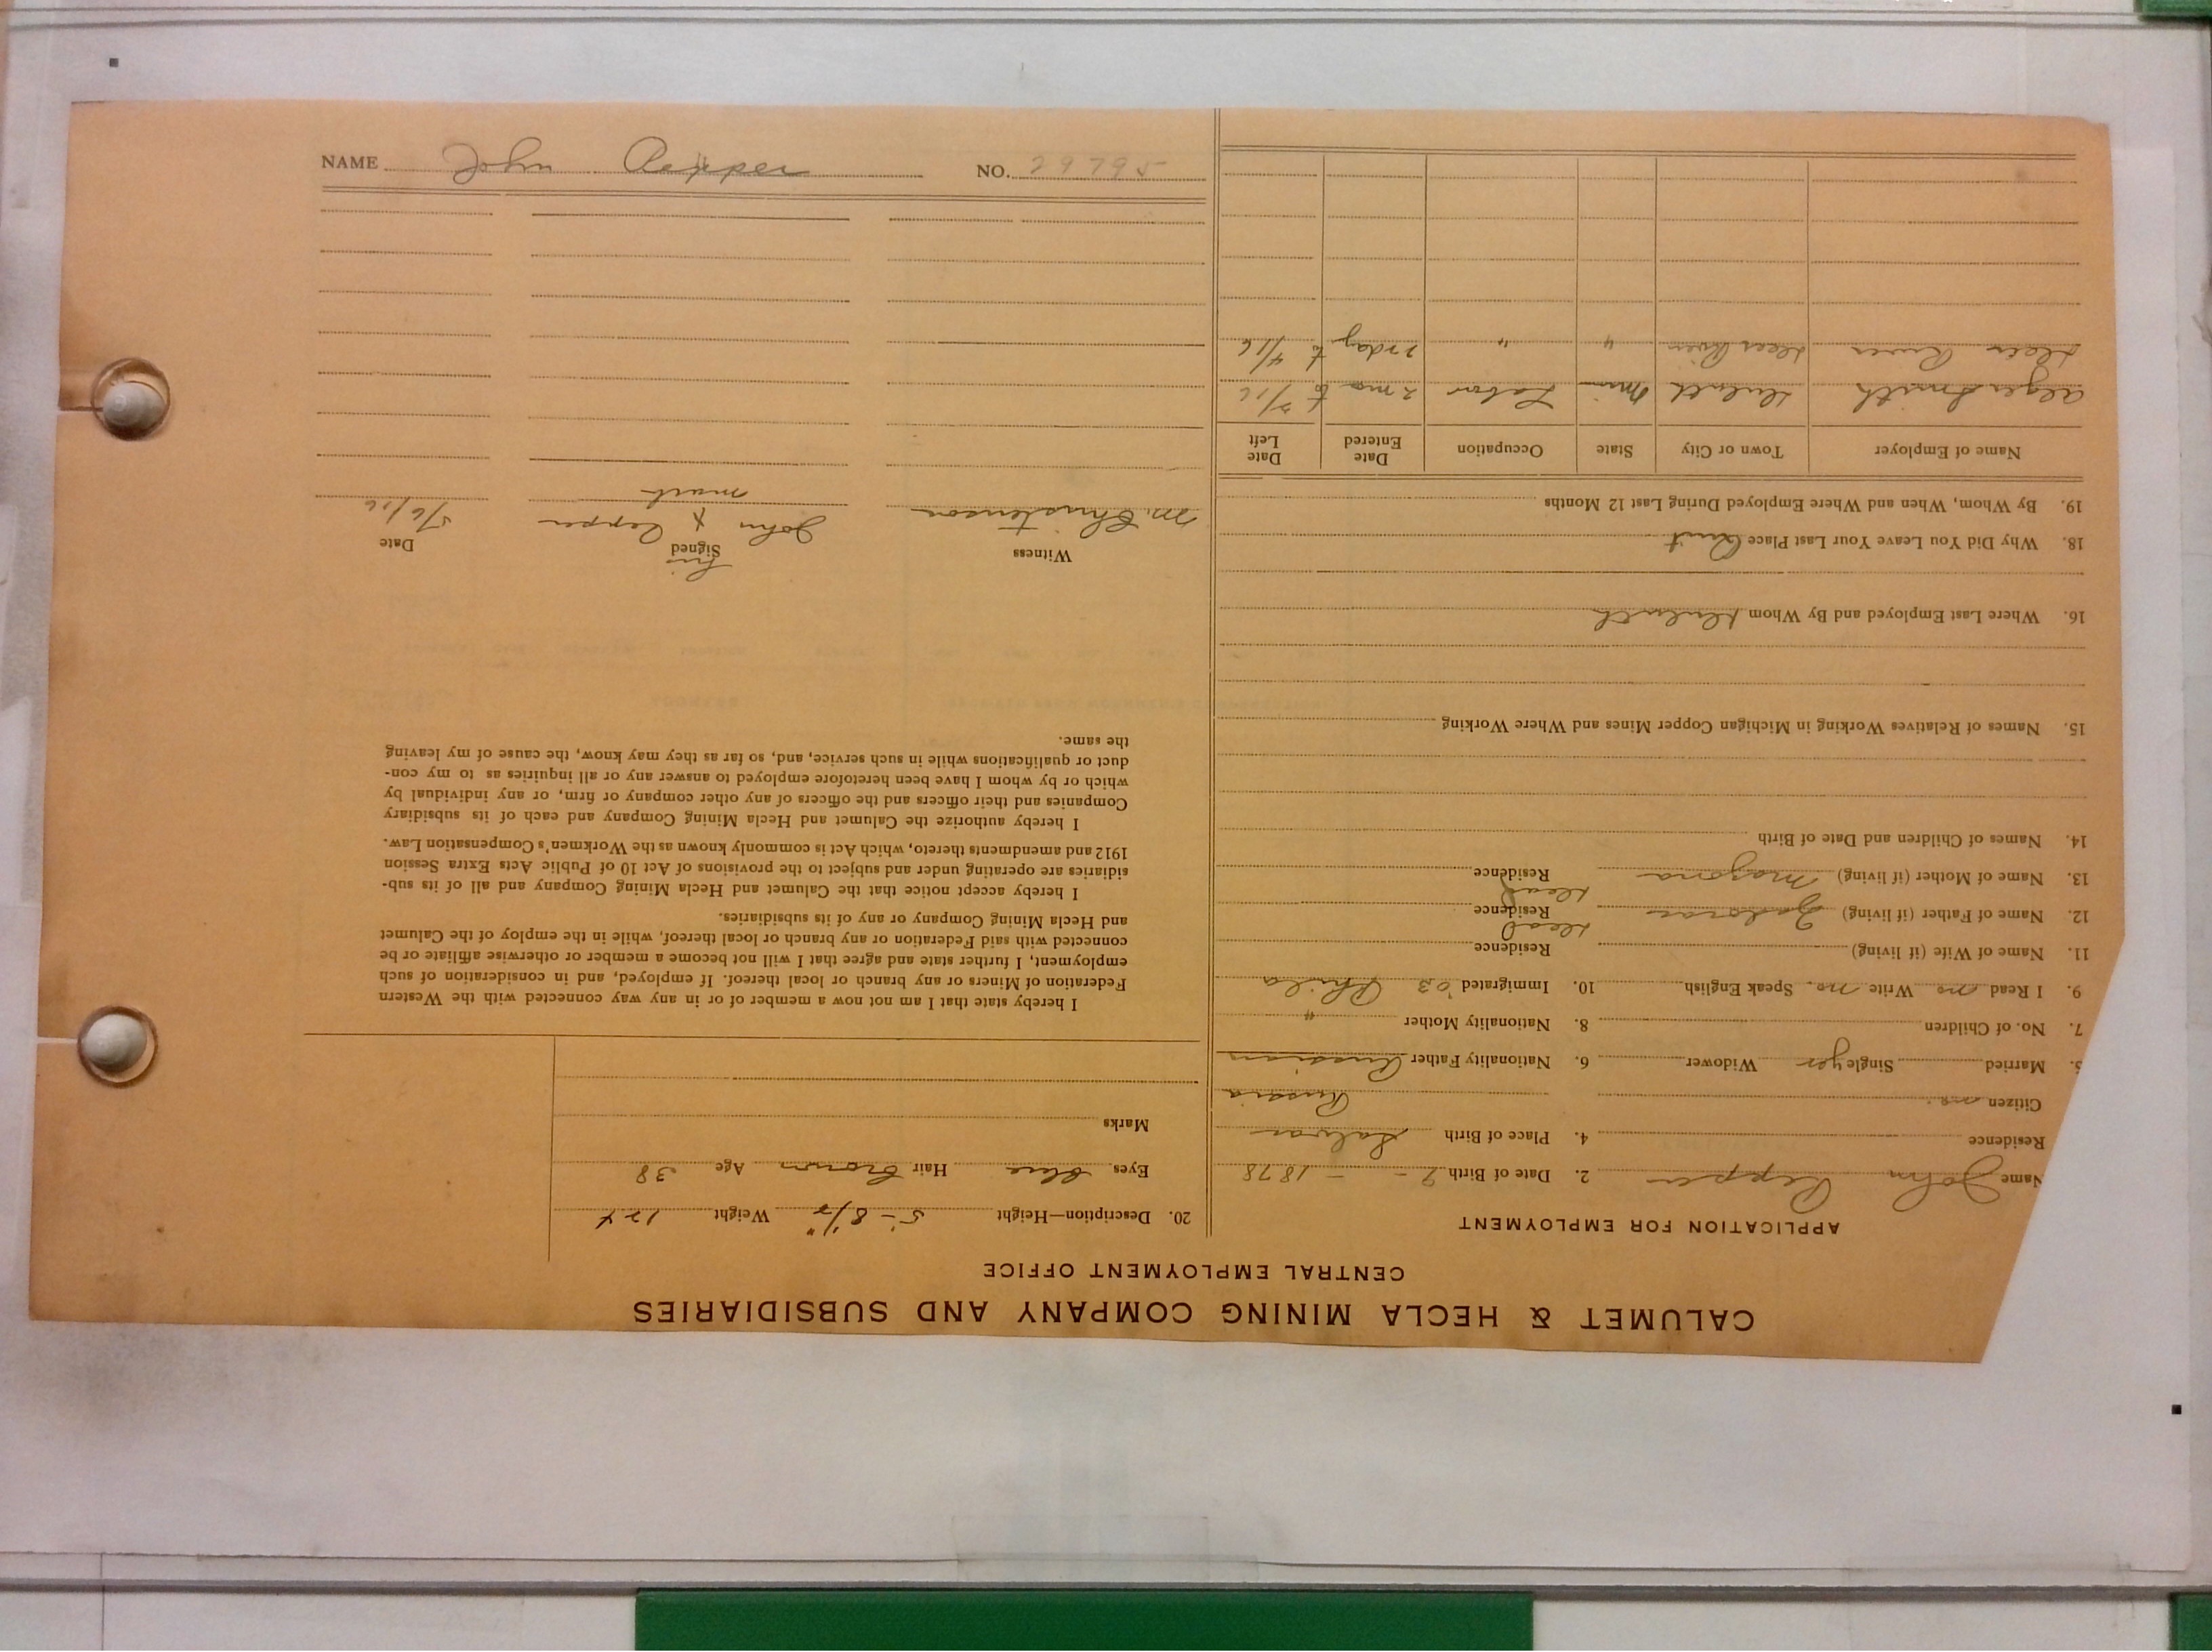 CALUMET & HECLA MINING COMPANY AND SUBSIDIARIES
CENTRAL EMPLOYMENT OFFICE
APPLICATION FOR EMPLOYMENT
Name John Repper 2. Date of Birth - - 1878
Residence 4. Place of Birth
Citizen no. Russia
Married Single yes Widower 6. Nationality Father Russian
7. No. of Children 8. Nationality Mother "
9. I Read no Write no. Speak English 10. Immigrated '03 Phila
11. Name of Wife (if living) Residence
12. Name of Father (if living) Residence Dead
13. Name of Mother (if living) Residence Dead
14. Names of Children and Date of Birth
15. Names of Relatives Working in Michigan Copper Mines and Where Working
16. Where Last Employed and By Whom Duluth
18. Why Did You Leave Your Last Place Quit
19. By Whom, When and Where Employed During Last 12 Months
Name of Employer Town or City State Occupation Date Entered Date Left
Alger Smith Duluth Minn Labor 2 mo to /16
Deer River Deer River " " days to 4/16
20. Description—Height 5-8 1/2" Weight 174
Eyes blue Hair brown Age 38
Marks
I hereby state that I am not now a member of or in any way connected with the Western
Federation of Miners or any branch or local thereof. If employed, and in consideration of such
employment, I further state and agree that I will not become a member or otherwise affiliate or be
connected with said Federation or any branch or local thereof, while in the employ of the Calumet
and Hecla Mining Company or any of its subsidiaries.
I hereby accept notice that the Calumet and Hecla Mining Company and all of its sub-
sidiaries are operating under and subject to the provisions of Act 10 of Public Acts Extra Session
1912 and amendments thereto, which Act is commonly known as the Workmen's Compensation Law.
I hereby authorize the Calumet and Hecla Mining Company and each of its subsidiary
Companies and their officers and the officers of any other company or firm, or any individual by
which or by whom I have been heretofore employed to answer any or all inquiries as to my con-
duct or qualifications while in such service, and, so far as they may know, the cause of my leaving
the same.
Witness Signed Date
his
M. Christenson John X Repper 5/6/16
mark
NAME John Repper NO. 29795